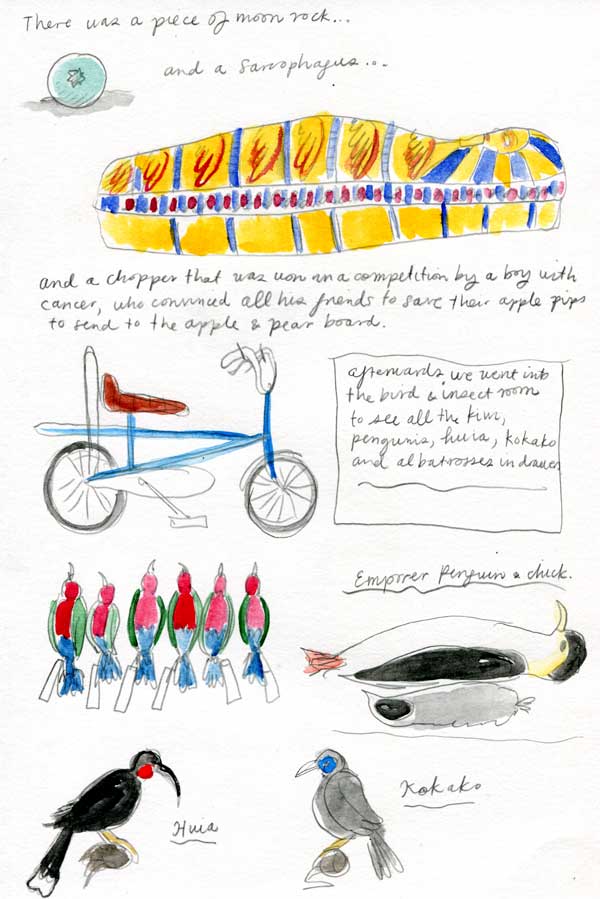 There was a piece of moon rock...
and a sarcophagus...
and a chopper that was won in a competition by a boy with
cancer, who convinced all his friends to save their apple pips
to send to the apple & pear board.
afterwards we went into
the bird & insect room
to see all the kiwi,
penguins, huia, kokako
and albatrosses in drawers
Emporer Penguin & chick.
Huia
Kokako